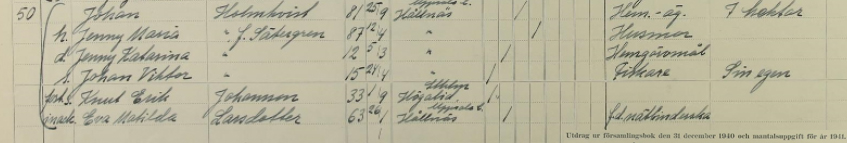 50 Johan Holmkvist 81 25/9 Uppsala l. Hållnäs / Hem.-äg. 7 hektar
h. Jenny Maria " f. Sätergren 87 12/4 " / Husmor
d. Jenny Katarina " 12 5/3 " / Hemgöromål
s. Johan Viktor " 15 24/4 " / Fiskare Sin egen
fost. s. Knut Erik Johansson 33 1/9 Högalid /
inack. Eva Matilda Larsdotter 63 26/1 Uppsala l. Hållnäs / f.d. nätbinderska
Utdrag ur församlingsbok den 31 december 1940 och mantalsuppgift för år 1941.